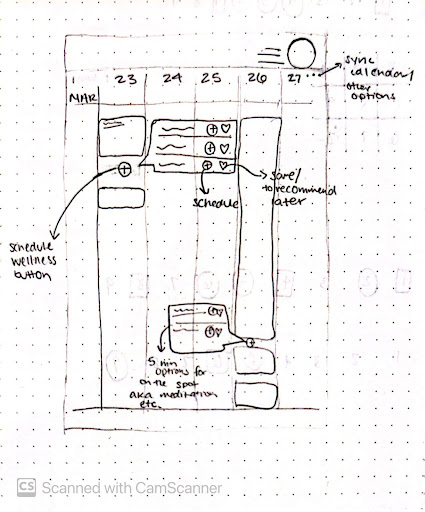 sync
calendar/
other
options
23 24 25 26 27 ...
MAR
schedule
save/
to recommend
later
schedule
wellness
button
5 min
options for
on the spot
aka meditation
etc.
CS Scanned with CamScanner